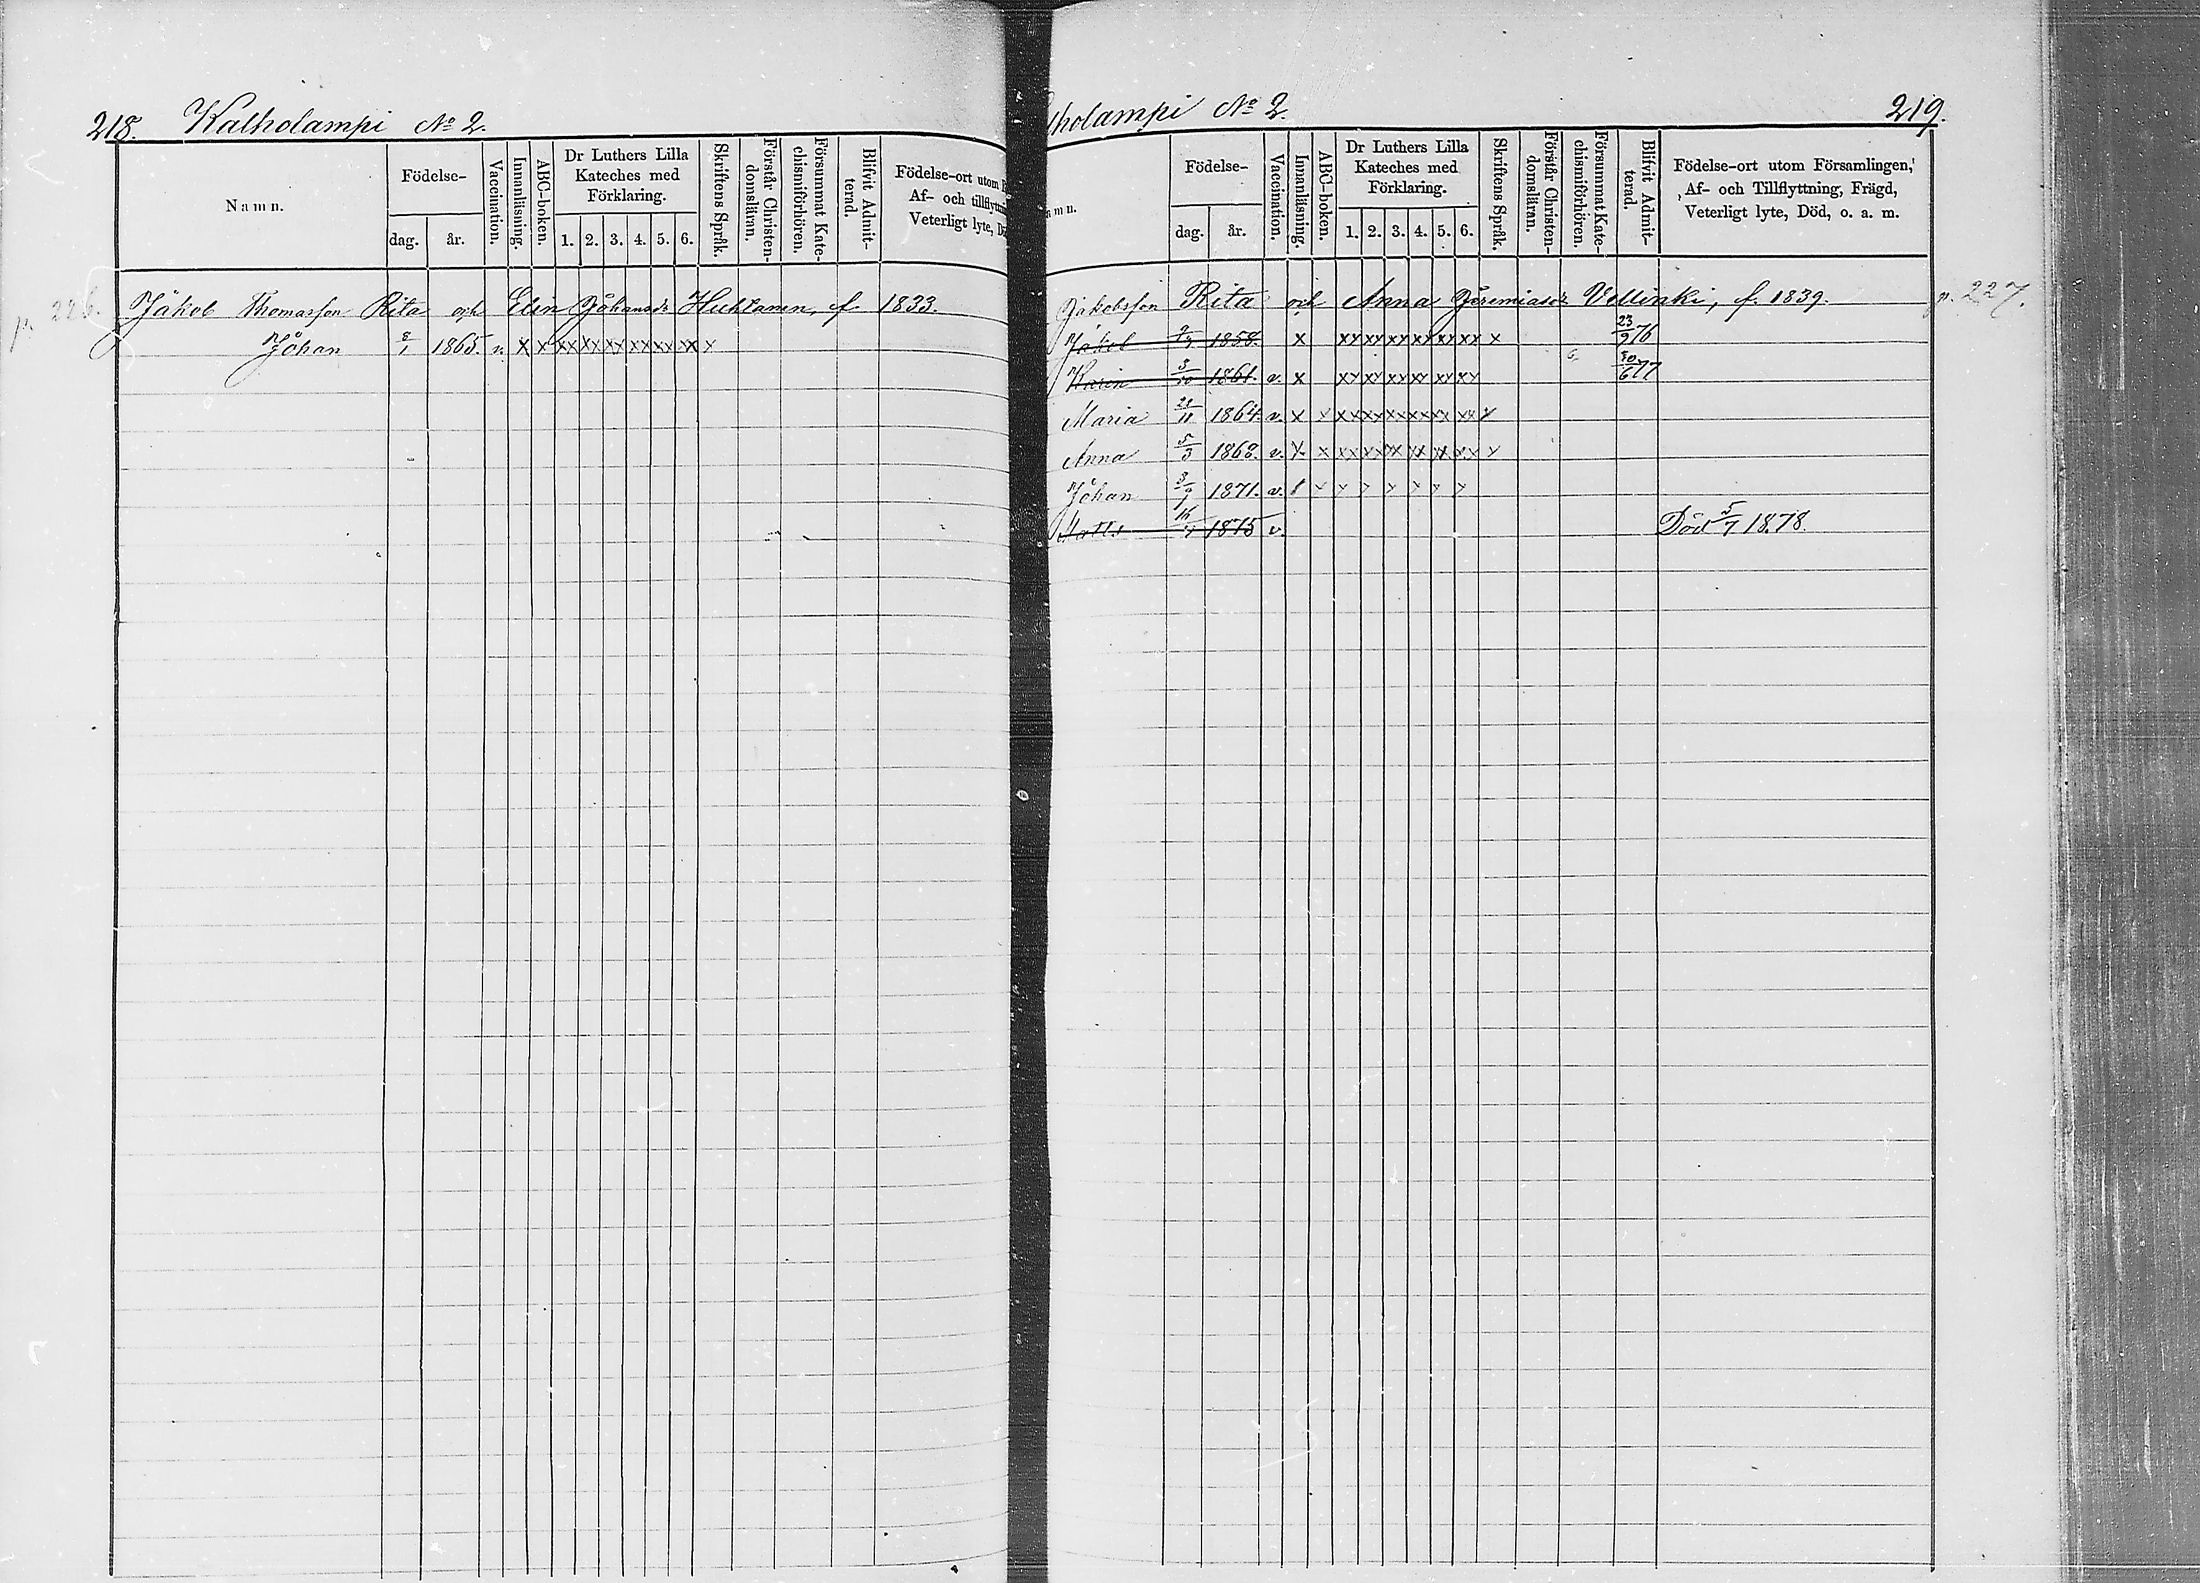 218. Kalholampi № 2.
Namn.
Födelse-
dag. år.
Vaccination.
Innanläsning.
ABC-boken.
Dr Luthers Lilla
Kateches med
Förklaring.
1. 2. 3. 4. 5. 6.
Skriftens Språk.
Förstår Christen-
domsläran.
Försummat Kate-
chismiförhören.
Blifvit Admit-
terad.
Födelse-ort utom
Af- och tillflyttn
Veterligt lyte, D
p. 226. Jakob Thomasson Rita och Elin Johansdr f. 1833.
Johan 8/1 1865. v. x x xx xx xx xx xx xx x
lholampi № 2. 219.
amn.
Födelse-
dag. år.
Vaccination.
Innanläsning.
ABC-boken.
Dr Luthers Lilla
Kateches med
Förklaring.
1. 2. 3. 4. 5. 6.
Skriftens Språk.
Förstår Christen-
domsläran.
Försummat Kate-
chismiförhören.
Blifvit Admit-
terad.
Födelse-ort utom Församlingen,
Af- och Tillflyttning, Frägd,
Veterligt lyte, Död, o. a. m.
Jakobsson Rita och Anna Jeremiasdr Vellinki, f. 1839. p. 227.
Jakob 1858. x xx xx xx xx xx xx x 23/9 76
Karin 3/10 1861. v. x xx xx xx xx xx xx 30/6 77
Maria 1864. v. x x xx xx xx xx xx xx x
Anna 5/3 1868. v. x x xx xx xx xx xx xx x
Johan 1871. v. x x x x x x x
Matts 1875 v. Död 5/7 1878.